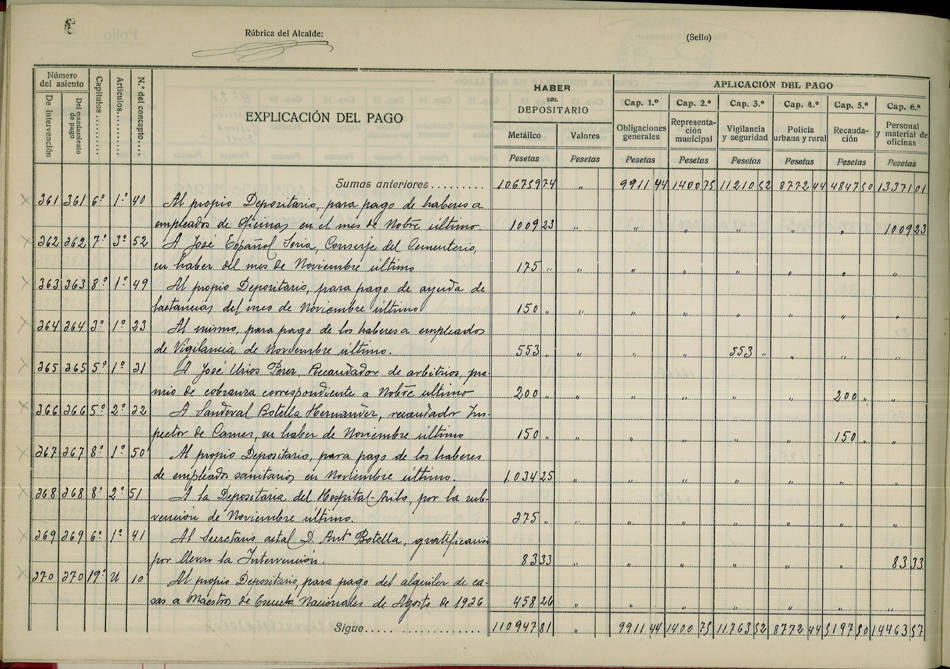 Rúbrica del Alcalde:
(Sello)
Número del asiento
De intervención
Del mandamiento de pago
Capítulos
Artículos
N.º del concepto
EXPLICACIÓN DEL PAGO
HABER DEL DEPOSITARIO
Metálico Valores
Pesetas Pesetas
APLICACIÓN DEL PAGO
Cap. 1.º Cap. 2.º Cap. 3.º Cap. 4.º Cap. 5.º Cap. 6.º
Obligaciones generales
Representación municipal
Vigilancia y seguridad
Policía urbana y rural
Recaudación
Personal y material de oficinas
Pesetas Pesetas Pesetas Pesetas Pesetas Pesetas
Sumas anteriores......... 106759 74 " 9911 44 1400 75 11210 52 8772 44 4847 50 13371 01
361 361 6º 1º 40 Al propio Depositario, para pago de haberes a
empleados de Oficinas en el mes de Nobre último. 1009 23 " " " " " " 1009 23
362 362 7º 3º 52 A José Español Soria, Conserje del Cementerio,
su haber del mes de Noviembre último 175 " " " " " " " "
363 363 8º 1º 49 Al propio Depositario, para pago de ayuda de
lactancias del mes de Noviembre último 150 " " " " " " " "
264 264 3º 1º 23 Al mismo, para pago de los haberes a empleados
de Vigilancia de Noviembre último. 553 " " " " 553 " " " "
265 265 5º 1º 21 A José Urios Perez, Recaudador de arbitrios, pre-
mio de cobranza correspondiente a Nobre último 200 " " " " " " 200 " "
266 266 5º 2º 22 A Sandoval Botella Hernandez, recaudador Ins-
pector de Carnes, su haber de Noviembre último 150 " " " " " " 150 " "
267 267 8º 1º 50 Al propio Depositario, para pago de los haberes
de empleados sanitarios en Noviembre último. 1.034 25
268 268 8º 2º 51 A la Depositaria del Hospital-Asilo, por la sub-
vención de Noviembre último. 275 " " " " " " " "
269 269 6º 1º 41 Al Secretario actal D. Ant Botella, gratificación
por llevar la Intervención. 83 33 " " " " " " 83 33
270 270 19º U 10 Al propio Depositario, para pago del alquiler de ca-
sas a Maestros de Escuela Nacionales de Agosto de 1926 458 26 " " " " " " "
Sigue............... 110947 81 " 9911 44 1400 75 11763 52 8772 44 5197 50 14463 57